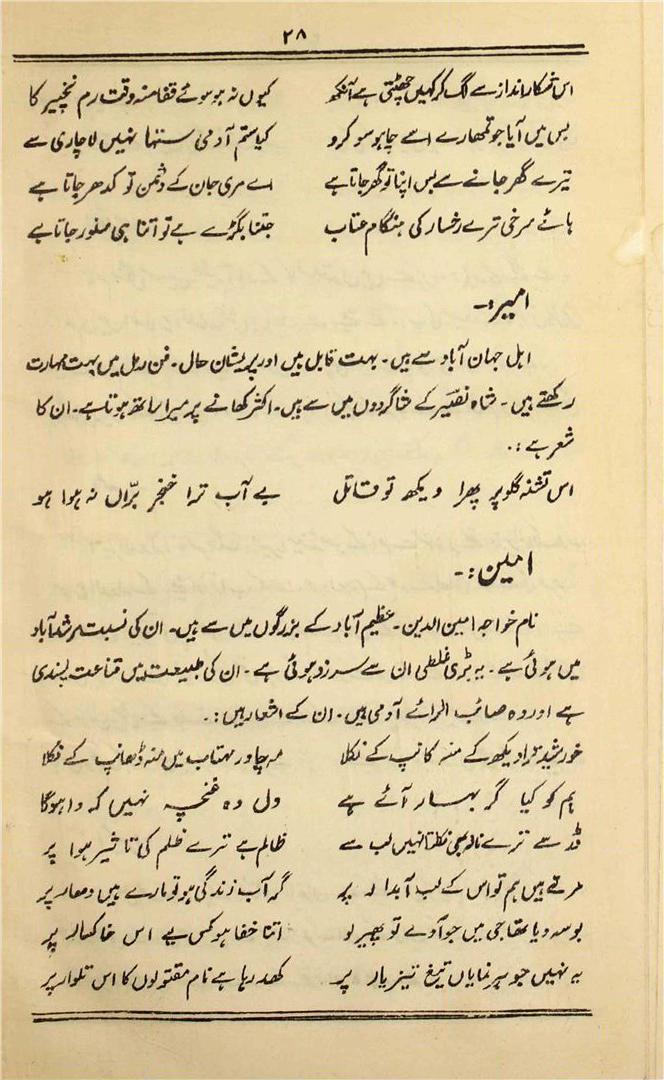 ۲۸
اس شکار انداز سے لگ کر کہیں چھٹتی ہے آنکھ کیوں نہ ہو سوئے قفا منہ وقت رم نخچیر کا
بس میں آیا جو تمھارے اسے چاہو سو کرو کیا ستم آدمی سنتہا نہیں لاچاری سے
تیرے گھر جانے سے بس اپنا تو گھر جاتا ہے اے مری جان کے دشمن تو کدھر جاتا ہے
ہائے سرخی ترے رخسار کی ہنگام عتاب جتنا بگڑے ہے تو اتنا ہی سنور جاتا ہے
امیر:-
اہل جہان آباد سے ہیں۔ بہت قابل ہیں اور پریشان حال۔ فن رمل میں بہت مہارت
رکھتے ہیں۔ شاہ نصیر کے شاگردوں میں سے ہیں۔ اکثر کھانے پر میرا ساتھ ہوتا ہے۔ ان کا
شعر ہے:.
اس تشنہ گلو پر پھرا دیکھ تو قاتل بے آب ترا خنجر برّاں نہ ہوا ہو
امین:-
نام خواجہ امین الدین۔ عظیم آباد کے بزرگوں میں سے ہیں۔ ان کی نسبت مرشد آباد
میں ہوئی ہے۔ یہ بڑی غلطی ان سے سرزد ہوئی ہے۔ ان کی طبیعت میں قناعت پسندی
ہے اور وہ صائب الرائے آدمی ہیں۔ ان کے اشعار ہیں:.
خورشید ترا دیکھ کے منہ کانپ کے نکلا مہ چادر مہتاب میں منہ ڈھانپ کے نکلا
ہم کو کیا گر بہار آئے ہے دل وہ غنچہ نہیں کہ وا ہوگا
قد سے ترے نالہ بھی نکلتا نہیں لب سے ظالم ہے ترے ظلم کی تاثیر ہوا پر
مرتے ہیں ہم تو اس کے لب آبدار پر گر آب زندگی ہو تو مارے ہیں دھار پر
بوسہ دیا تھا جی میں جو آوے تو پھیر لو اتنا خفا ہو کس لیے اس خاکسار پر
یہ نہیں جوہر نمایاں تیغ تیز یار پر کھد رہا ہے نام مقتولوں کا اس تلوار پر